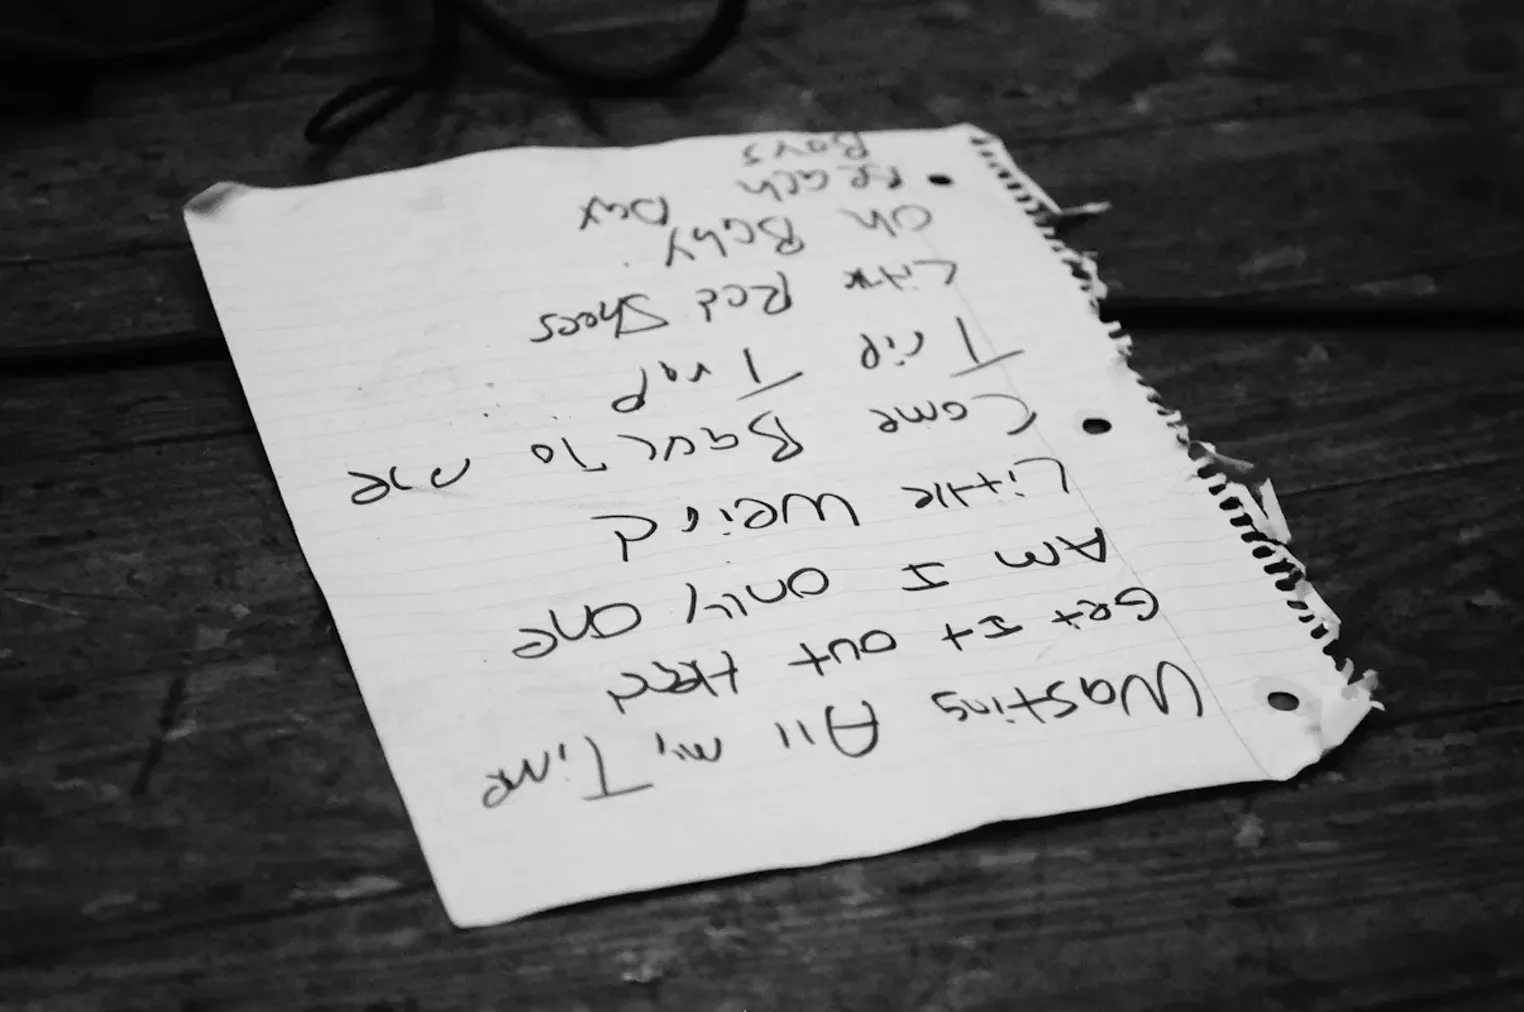 Wasting All my Time
Get It out Here
Am I only one
Little Weird
Come Back To Me
Trip Trap
Little Red Shoes
Oh Baby
Beach Day
Boys